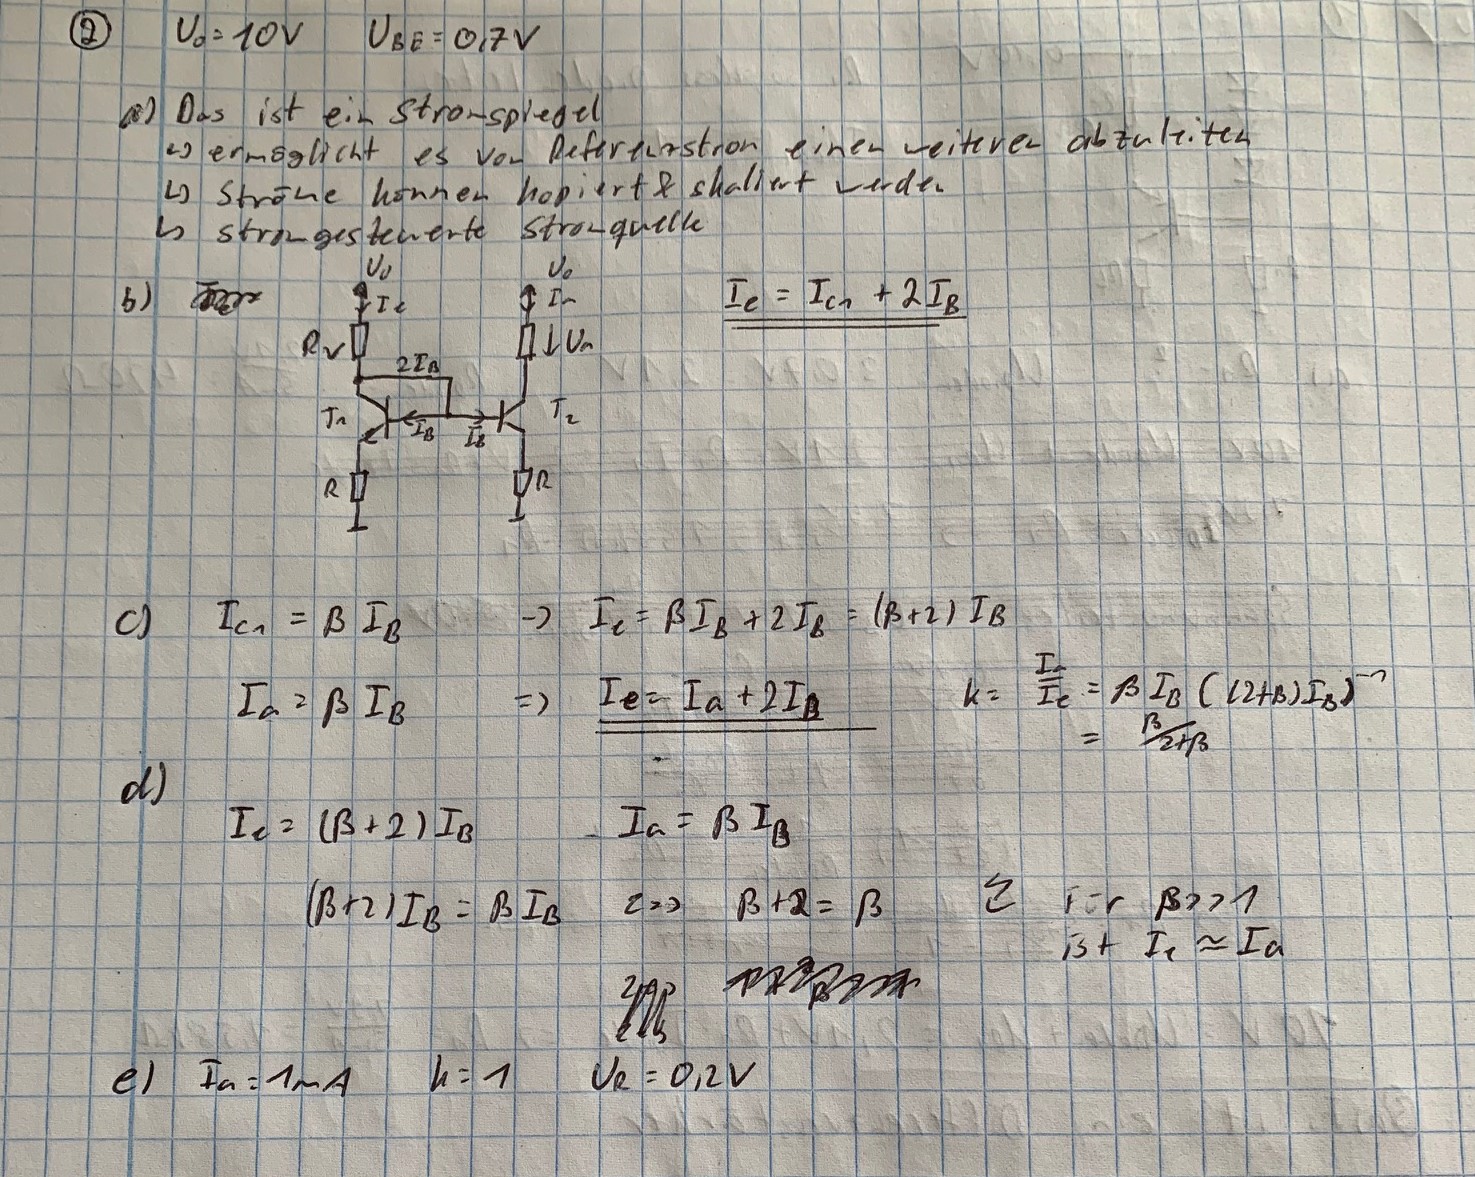 ② U₀ = 10V U_BE = 0,7V
a) Das ist ein Stromspiegel
↳ ermöglicht es von Referenzstrom einen weiteren abzuleiten
↳ Ströme können kopiert & skaliert werden
↳ stromgesteuerte Stromquelle
b) I_e = I_C1 + 2I_B
U₀ U₀
I_e I_a
R_V U_a
2I_B
T₁ I_B I_B T₂
R R
c) I_C1 = β I_B → I_e = β I_B + 2 I_B = (β+2) I_B
I_a = β I_B ⇒ I_e = I_a + 2I_B k = I_a/I_e = β I_B ((2+β)I_B)⁻¹
= β/2+β
d)
I_e = (β+2) I_B I_a = β I_B
(β+2) I_B = β I_B <=> β+2 = β ↯ Für β>>1
ist I_e ≃ I_a
e) I_a = 1mA k = 1 U_R = 0,2V